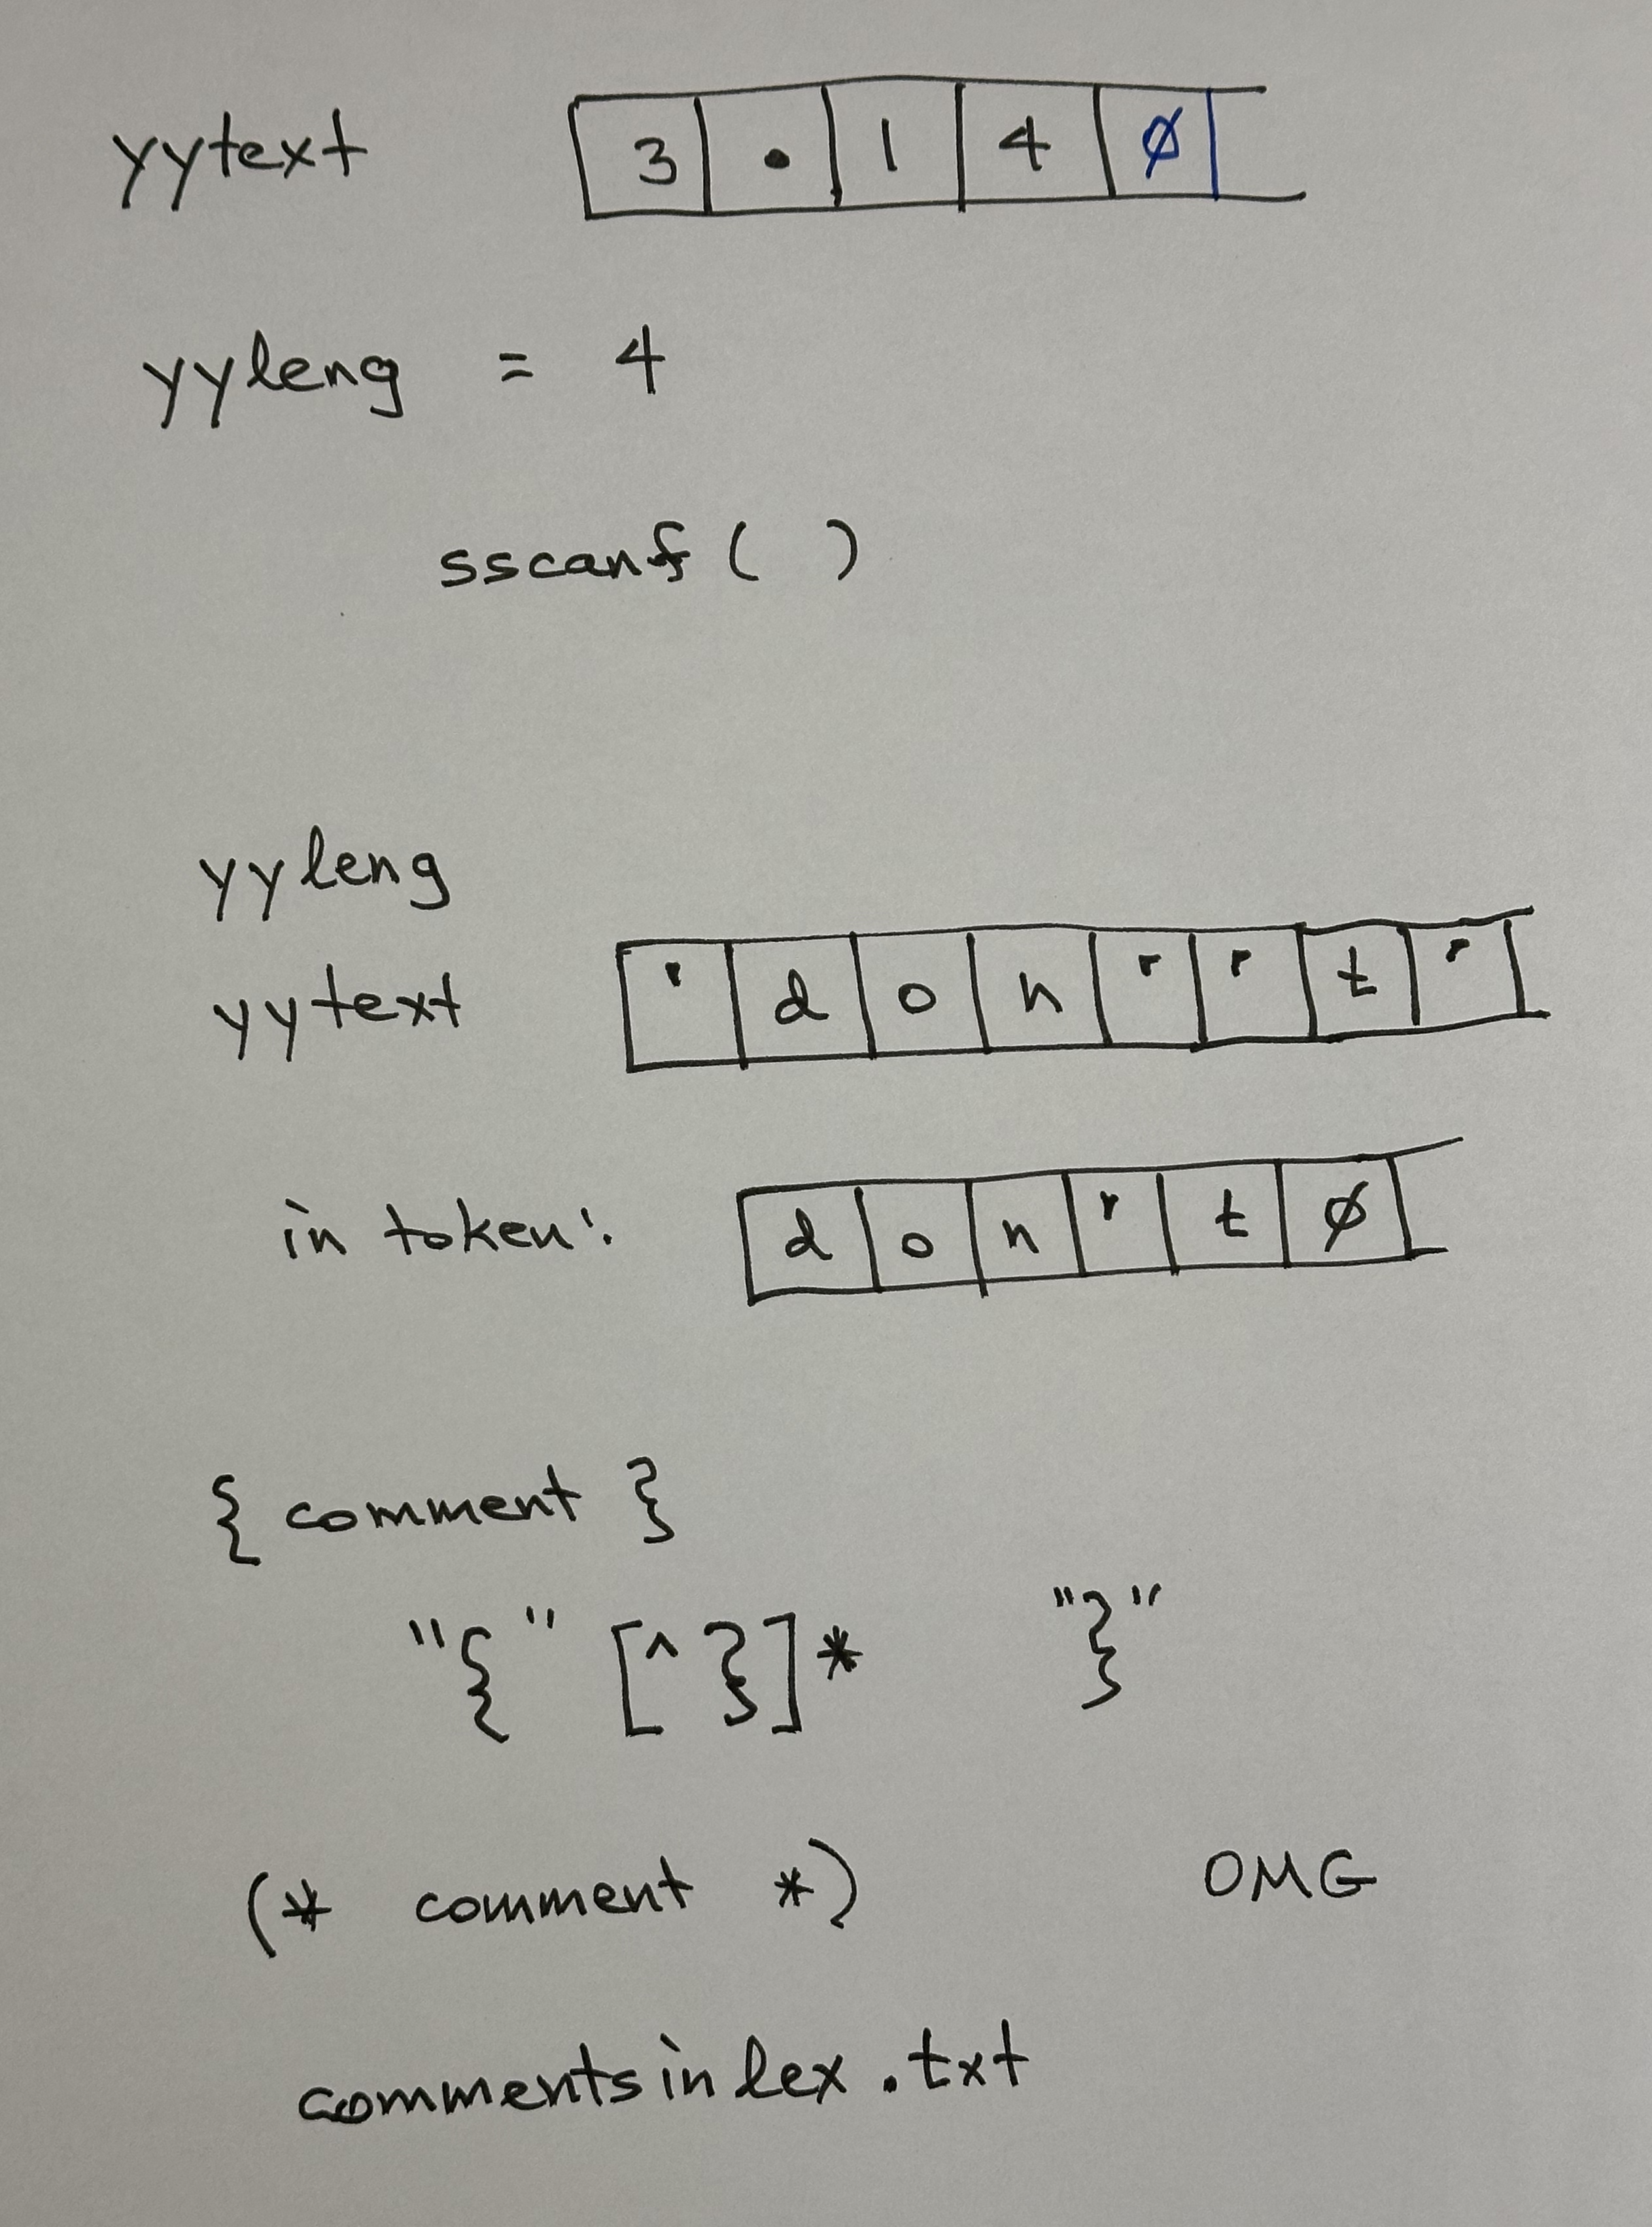 yytext 3 . 1 4 Ø
yyleng = 4
sscanf ( )
yyleng
yytext ' d o n ' ' t '
in token: d o n ' t Ø
{ comment }
"{" [^}]* "}"
(* comment *) OMG
commentsinlex.txt